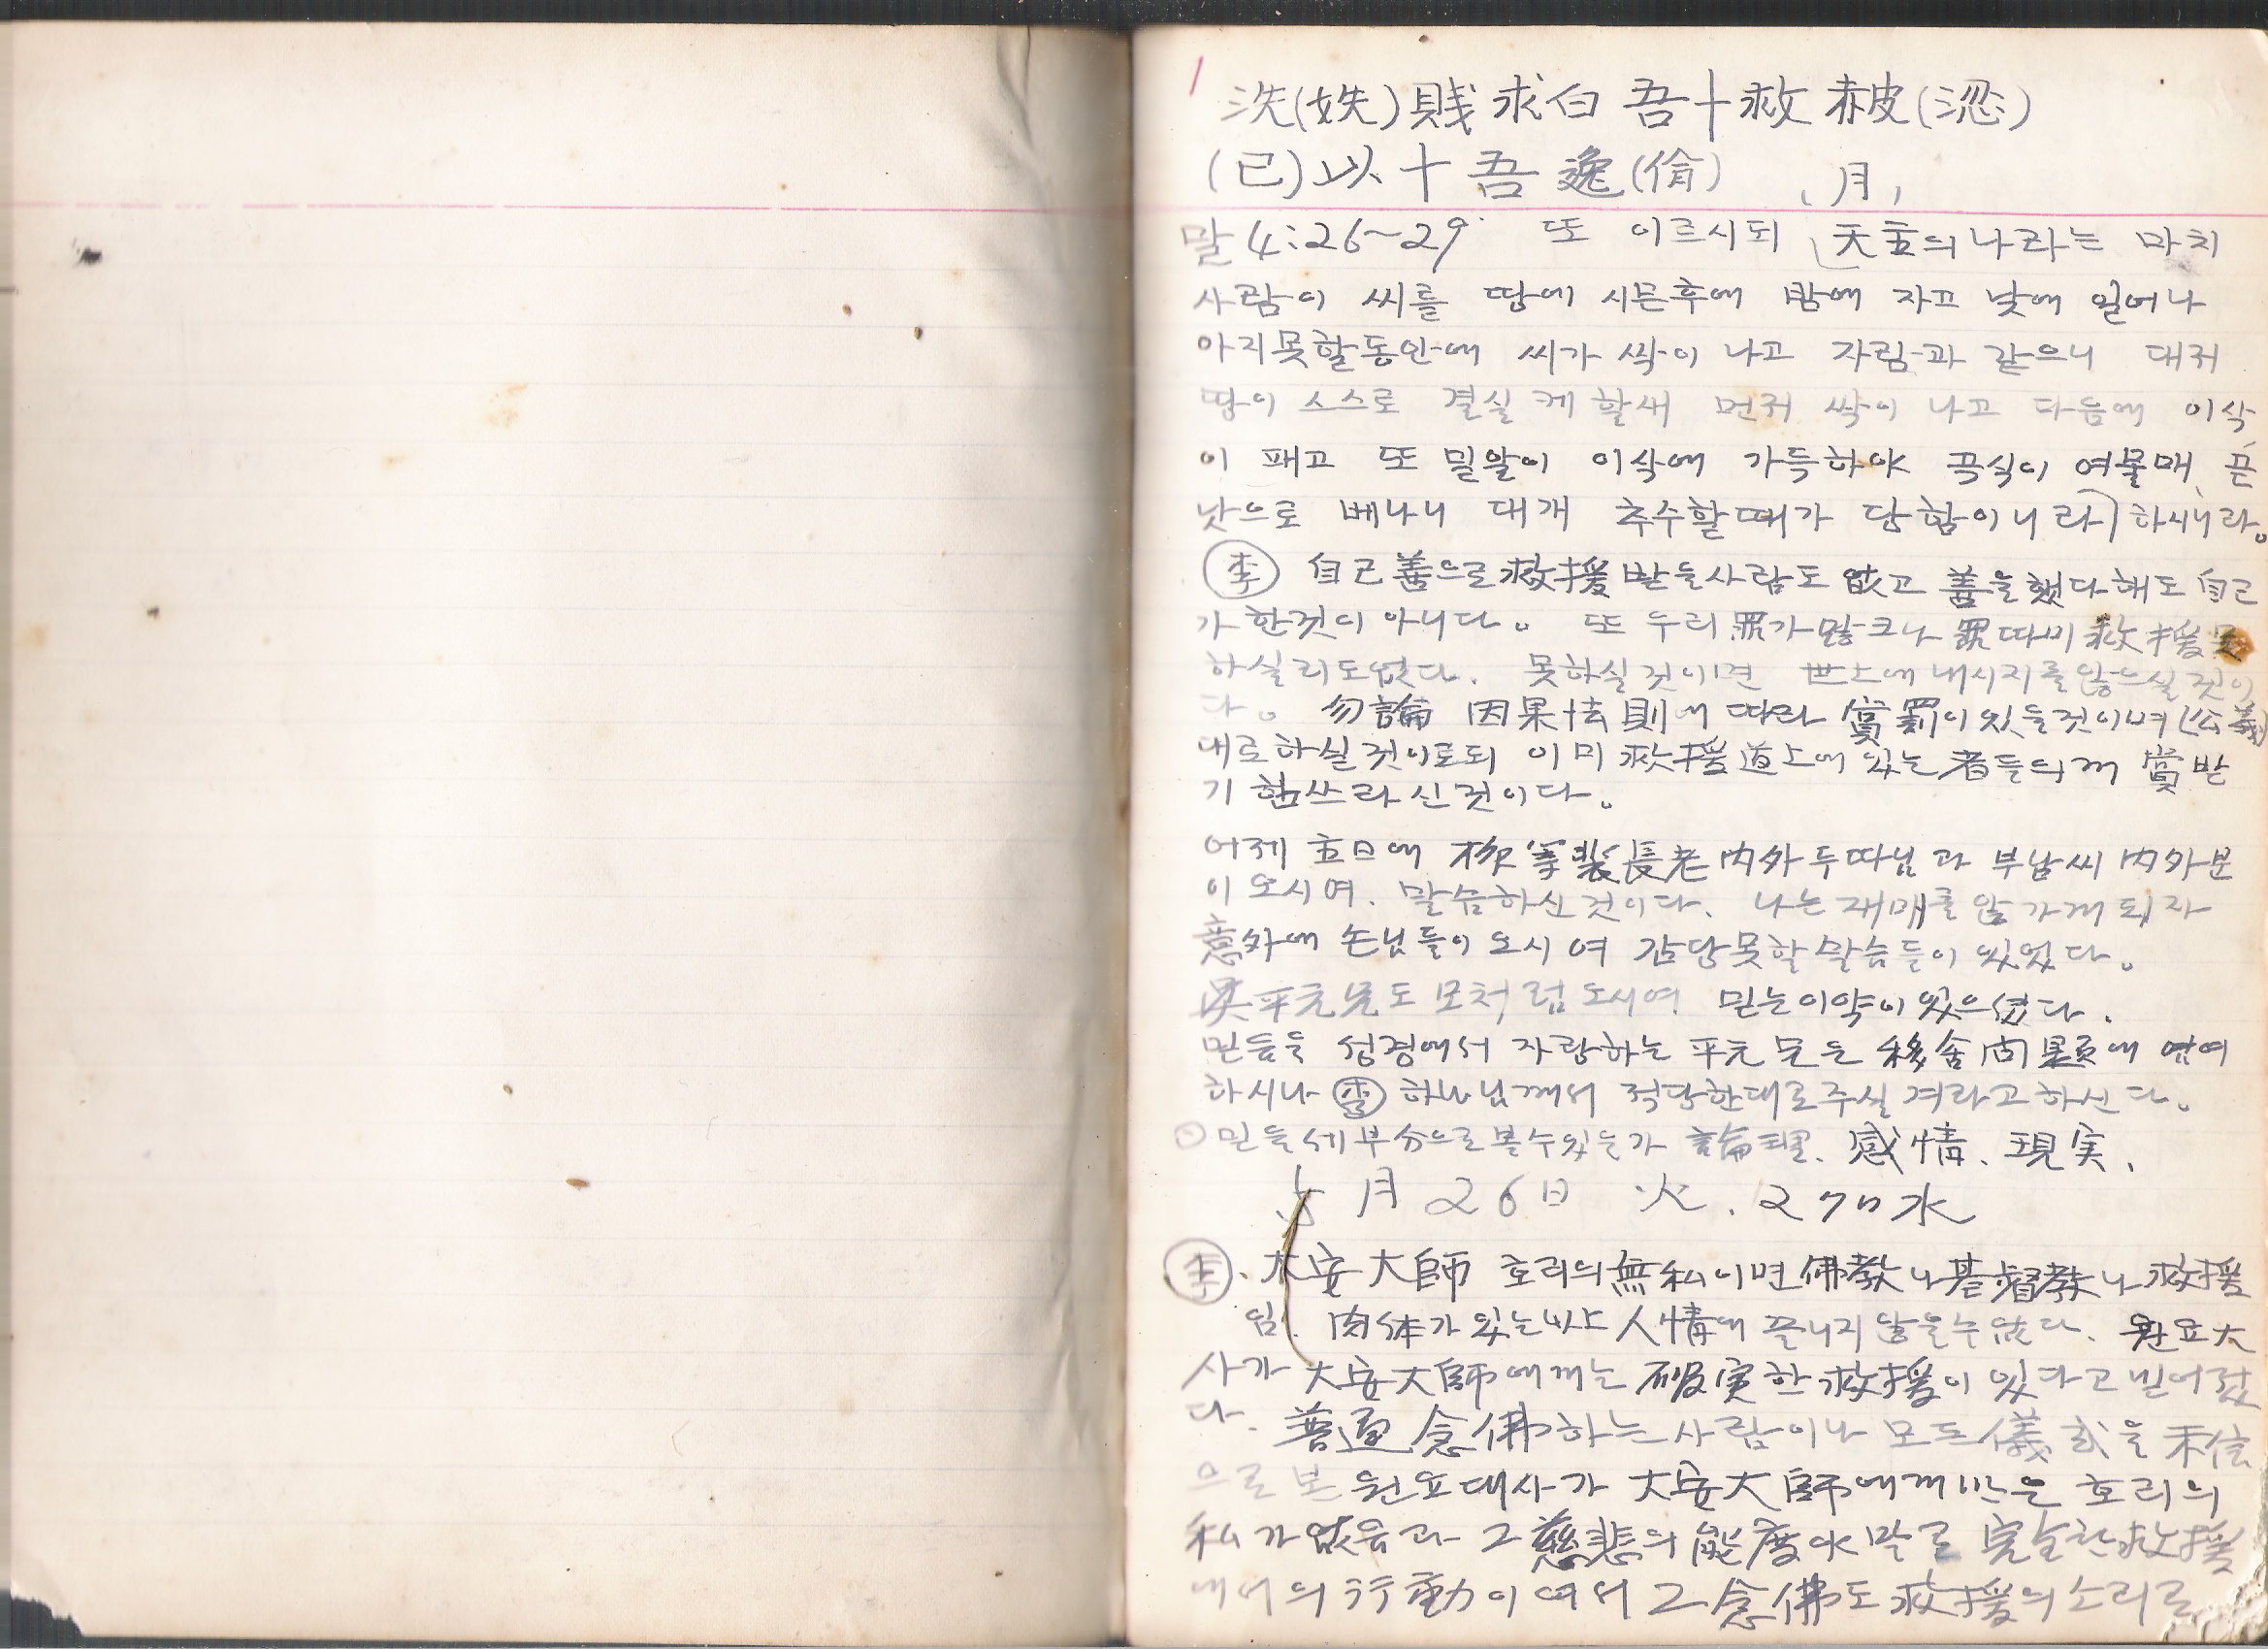 1
泆(妷)賎求白吾十救赦(涊)
(已)以十吾逸(偷) 月
말 4:26~29 또 이르시되 天主의 나라는 마치
사람이 씨를 땅에 시믄후에 밤에 자고 낮에 일어나
아지못할동안에 씨가 싹이 나고 자람과 같으니 대귀
땅이 스스로 결실케 할새 먼저 싹이 나고 다음에 이삭
이 패고 또 밀알이 이삭에 가득하야 곡식이 여물매 곧
낫으로 베나니 대개 추수할때가 당함이니라) 하시니라。
李 自己善으로 救援받을사람도 없고 善을했다해도 自己
가한것이 아니다。 또 우리 罪가 많크나 罪따미 救援못
하실리도없다. 못하실것이면 世上에 내시지를않으실것이
다。 勿論 因果法則에 따라 賞罰이 있을것이며 (公義)
대로하실것이로되 이미 救援道上에 있는者들의게 賞받
기 힘쓰라신것이다。
어제 五日에 長老內外 두따님과 부남씨 內外분
이 오시여. 말슴하신것이다. 나는 재매를 않가게되자
意外에 손님들이 오시여 감당못할말슴들이 있었다。
平元兄도 모처럼 오시여 믿는이약이 있으셨다.
믿음을 성경에서 자랑하는 平元兄은 移舍問題에 염여
하시나 李 하나님께서 적당한대로주실 겨라고하신다。
믿음 세부分으로볼수있는가 論理、感情、現実、
5月 26日 火. 27日 水
李. 大安大師 호리의 無私이면 佛教나 基督教나 救援
임. 肉体가 있는以上 人情에 끌니지 않을수없다. 원요大
사가 大安大師에게는 確実한 救援이 있다고 믿어젔
다. 普通 念佛하는사람이나 모든儀式을 未信
으로 본 원요대사가 大安大師에게만은 호리의
私가없음과 그 慈悲의 態度야말로 完全한救援
내에의 行動이여서 그 念佛도 救援의 소리로